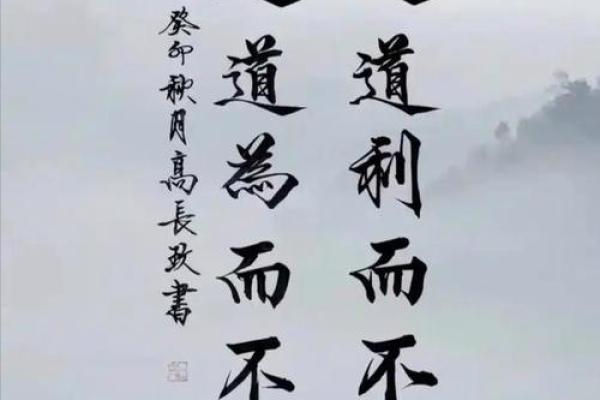 道利而不
道為而不
癸卯秋月高長政書